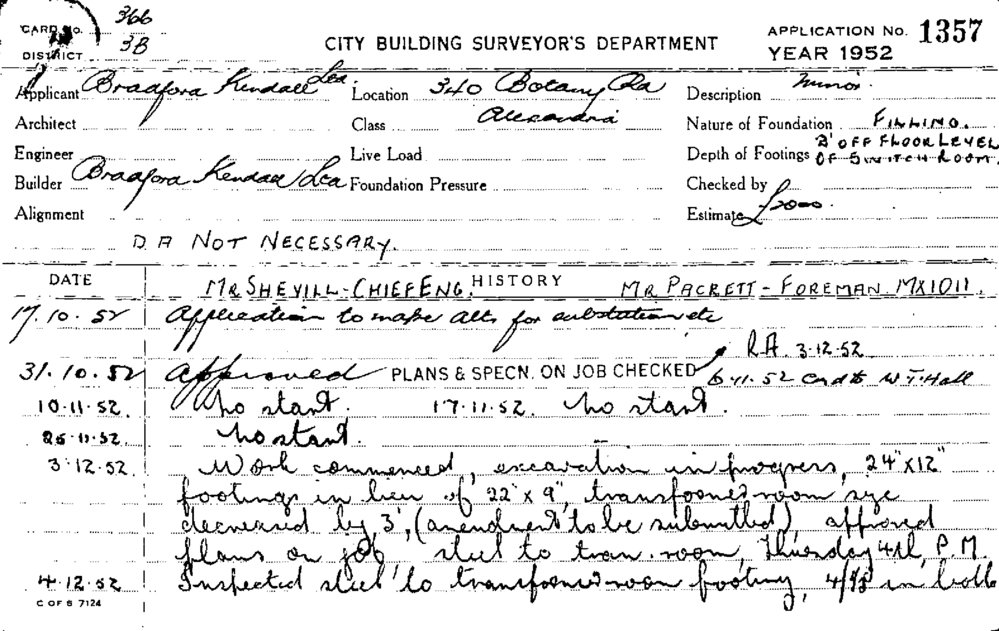 CARD No. 366
DISTRICT 3B
CITY BUILDING SURVEYOR'S DEPARTMENT
APPLICATION No. 1357
YEAR 1952
Applicant Bradford Kendall Ltd. Location 340 Botany Rd Description Minor.
Architect Class Alexandria Nature of Foundation FILLING.
Engineer Live Load Depth of Footings 2' OFF FLOOR LEVEL OF SWITCH ROOM.
Builder Bradford Kendall Ltd Foundation Pressure Checked by
Alignment Estimate £2000.
D A NOT NECESSARY.
DATE HISTORY
MR SHEVILL - CHIEF ENG. MR PACKETT - FOREMAN. MX1011.
17.10.52 Application to make alts. for substation etc
RA 3.12.52
31.10.52 Approved PLANS & SPECN. ON JOB CHECKED 6.11.52 Card to W T Hall
10.11.52. No start. 17.11.52. No start.
25.11.52. No start.
3.12.52. Work commenced, excavation in progress, 24" x 12"
footings in lieu of 22" x 9", transformer room size
decreased by 3', (amendment to be submitted) approved
plans on job, steel to tran. room, Thursday 4th, P.M.
4.12.52 Inspected steel to transformer room footing, in both
C OF S 7124